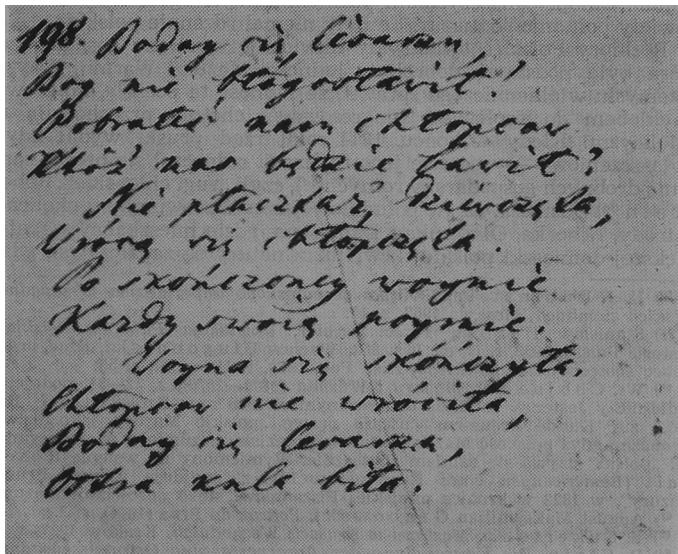 198. Boday cię, Cisarzu,
Bog nie błogosławił!
Pobrałeś nam chłopcow
Któż nas będzie bawił?
Nie płaczkaż, dziewczęta,
Wrócą się chłopczęta.
Po skończoney woynie
Kazdy swoię poymie.
Woyna się skończyła,
Chłopcow nie wróciła,
Boday cię Cesarza,
Ostra kula biła.